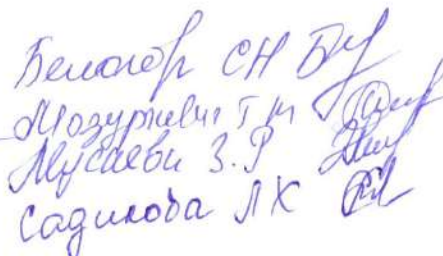 Белогор СН
Мазуркевич Т М
Мусаева З.Р
Садикова ЛХ